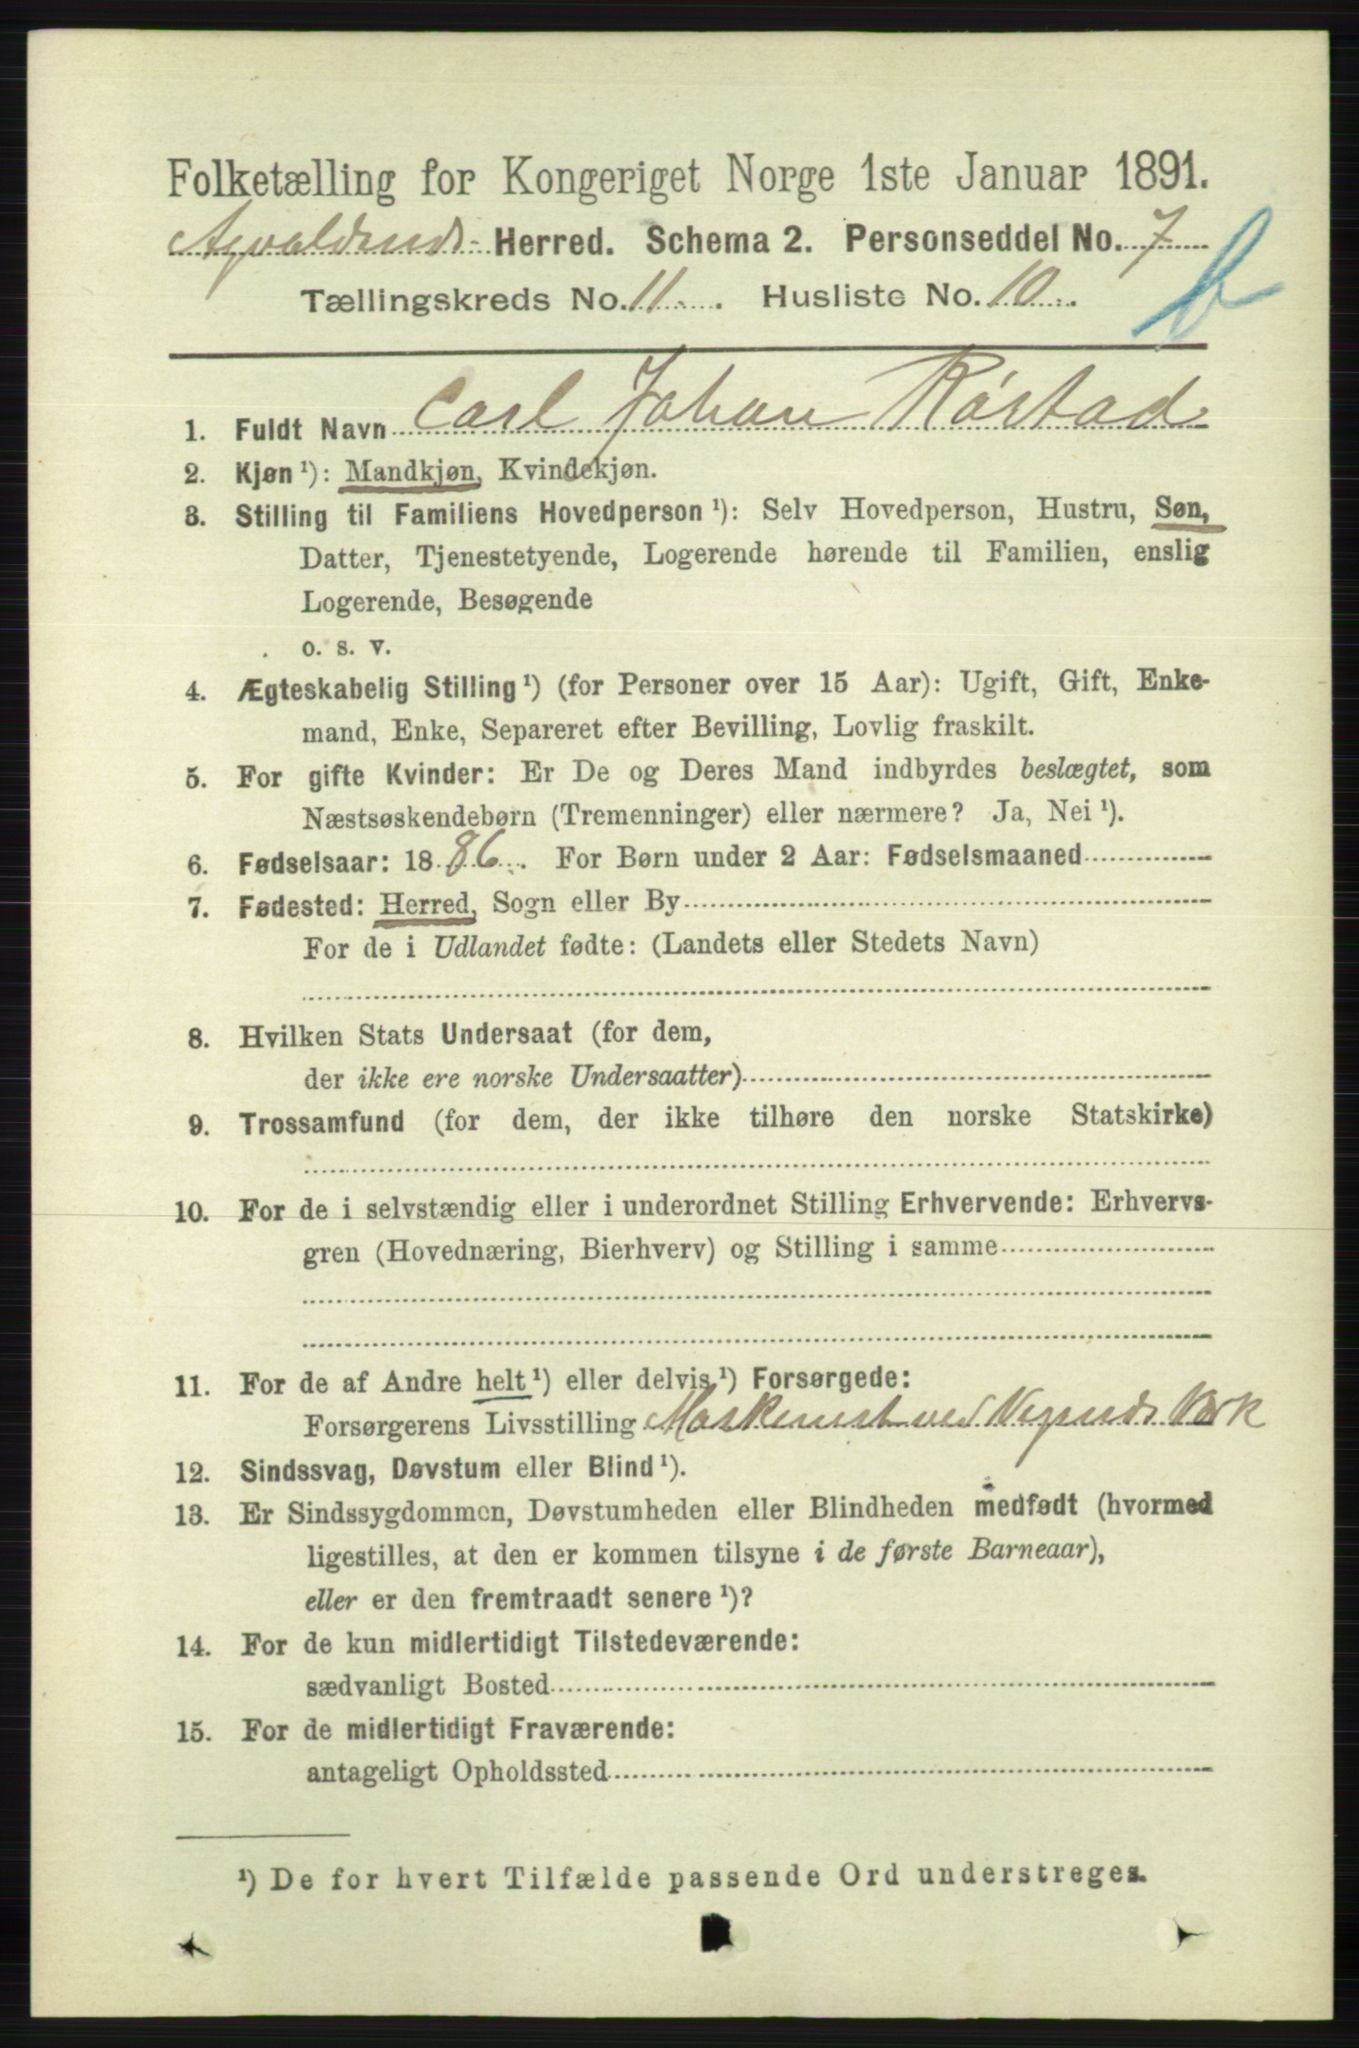 Folketælling for Kongeriget Norge 1ste Januar 1891.
Avaldsnes Herred. Schema 2. Personseddel No. 7
Tællingskreds No. 11. Husliste No. 10. b
1. Fuldt Navn Carl Johan Røstad
2. Kjøn ¹): Mandkjøn, Kvindekjøn.
3. Stilling til Familiens Hovedperson ¹): Selv Hovedperson, Hustru, Søn,
Datter, Tjenestetyende, Logerende hørende til Familien, enslig
Logerende, Besøgende
o. s. v.
4. Ægteskabelig Stilling ¹) (for Personer over 15 Aar): Ugift, Gift, Enke-
mand, Enke, Separeret efter Bevilling, Lovlig fraskilt.
5. For gifte Kvinder: Er De og Deres Mand indbyrdes beslægtet, som
Næstsøskendebørn (Tremenninger) eller nærmere? Ja, Nei ¹).
6. Fødselsaar: 1886. For Børn under 2 Aar: Fødselsmaaned
7. Fødested: Herred, Sogn eller By
For de i Udlandet fødte: (Landets eller Stedets Navn)
8. Hvilken Stats Undersaat (for dem,
der ikke ere norske Undersaatter)
9. Trossamfund (for dem, der ikke tilhøre den norske Statskirke)
10. For de i selvstændig eller i underordnet Stilling Erhvervende: Erhvervs-
gren (Hovednæring, Bierhverv) og Stilling i samme
11. For de af Andre helt ¹) eller delvis ¹) Forsørgede:
Forsørgerens Livsstilling Maskinist ved Vigsnds Værk
12. Sindssvag, Døvstum eller Blind ¹).
13. Er Sindssygdommen, Døvstumheden eller Blindheden medfødt (hvormed
ligestilles, at den er kommen tilsyne i de første Barneaar),
eller er den fremtraadt senere ¹)?
14. For de kun midlertidigt Tilstedeværende:
sædvanligt Bosted
15. For de midlertidigt Fraværende:
antageligt Opholdssted
¹) De for hvert Tilfælde passende Ord understreges.